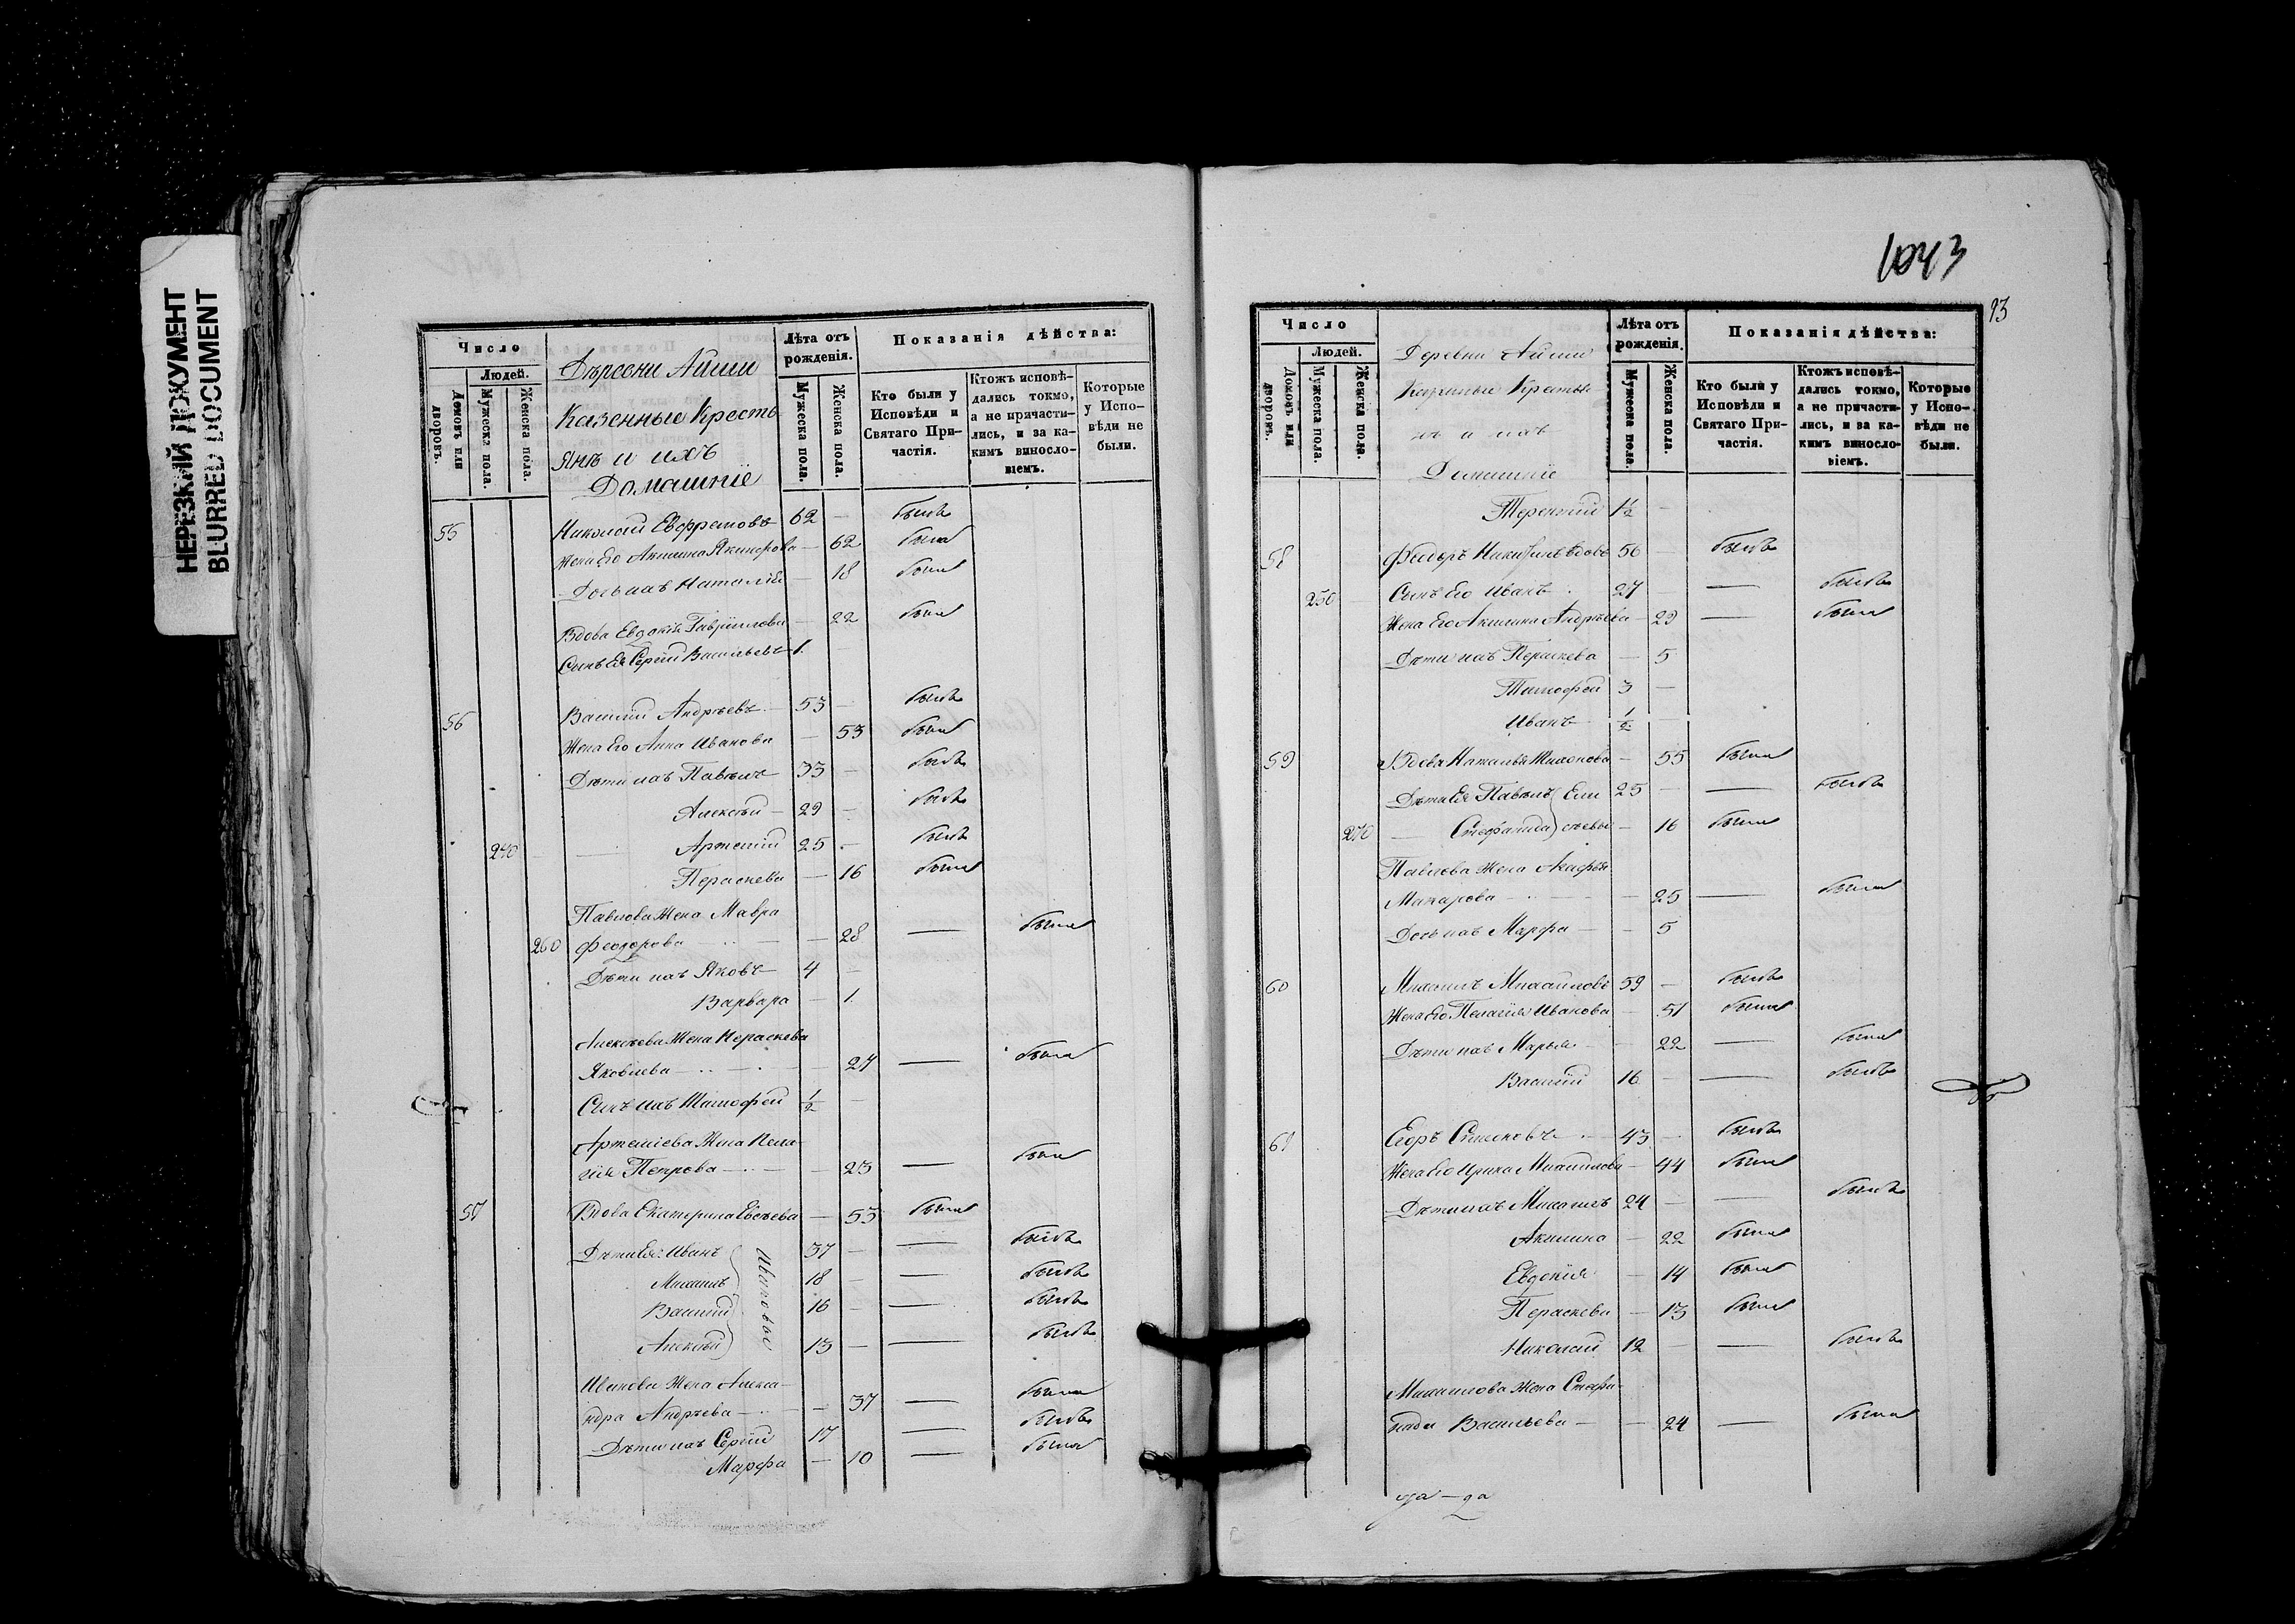 НЕРЕЗКИЙ ДОКУМЕНТ
BLURRED DOCUMENT
Число
Людей.
Домовъ или дворовъ.
Мужеска пола.
Женска пола.
Деревни Айши
Казенные Кресть
яне и ихъ
Домашніе
Лѣта отъ рожденія.
Мужеска пола.
Женска пола.
Показанія дѣйства:
Кто были у Исповѣди и Святаго Причастія.
Ктожъ исповѣдались токмо, а не причастились, и за какимъ винословіемъ.
Которые у Исповѣди не были.
55 Николай Евфрановъ 62 — былъ
Жена Его Акилина Якимова — 62 была
Дочь ихъ Наталія — 18 была
Вдова Евдокія Гавріилова — 22 была
Сынъ Ея Сергій Васильевъ 1 —
56 Василій Андреевъ 53 — былъ
Жена Его Анна Иванова — 53 была
Дѣти ихъ Павелъ 33 — былъ
Алексѣй 29 — былъ
240 Артемій 25 — былъ
Параскева — 16 была
Павлова Жена Мавра
260 Феодорова — 28 — была
Дѣти ихъ Яковъ 4 —
Варвара — 1
Алексѣева Жена Параскева
Яковлева — 27 — была
Сынъ ихъ Тимофей 1/2 —
Артеміева Жена Пела
гія Петрова — 23 — была
57 Вдова Екатерина Евсѣева — 53 была
Дѣти Ея: Иванъ 37 — — былъ
Михаилъ 18 — — былъ
Василій 16 — — былъ
Алексѣй 13 — — былъ
Ивановы
Иванова Жена Алекса
ндра Андреева — 37 — была
Дѣти ихъ Сергій 17 — былъ
Марфа — 10 — была
1043
93
Число
Людей.
Домовъ или дворовъ.
Мужеска пола.
Женска пола.
Деревни Айши
Казенные Крестья
не и ихъ
Домашніе
Лѣта отъ рожденія.
Мужеска пола.
Женска пола.
Показанія дѣйства:
Кто были у Исповѣди и Святаго Причастія.
Ктожъ исповѣдались токмо, а не причастились, и за какимъ винословіемъ.
Которые у Исповѣди не были.
Терентій 1 1/2 —
58 Федоръ вдовъ 56 — былъ
250 Сынъ Его Иванъ 27 — — былъ
Жена Его Акилина Андреева — 29 — была
Дѣти ихъ Параскева — 5
Тимофей 3 —
Иванъ 1/2 —
59 Вдова Наталья Тихонова — 55 была
Дѣти Ея Павелъ Ели 25 — — былъ
270 — Стефанида сѣевы — 16 была
Павлова Жена Агафья
Макарова — 25 — была
Дочь ихъ Марфа — 5
60 Михаилъ Михайловъ 59 — былъ
Жена Его Пелагія Иванова — 51 была
Дѣти ихъ Марья — 22 — была
Василій 16 — — былъ
61 Егоръ Симеоновъ 43 — былъ
Жена Его Ирина Михайлова — 44 была
Дѣти ихъ Михаилъ 24 — — былъ
Акилина — 22 была
Евдокія — 14 была
Параскева — 13 была
Николай 12 — — былъ
Михаилова Жена Стефа
нида Васильева — 24 — была